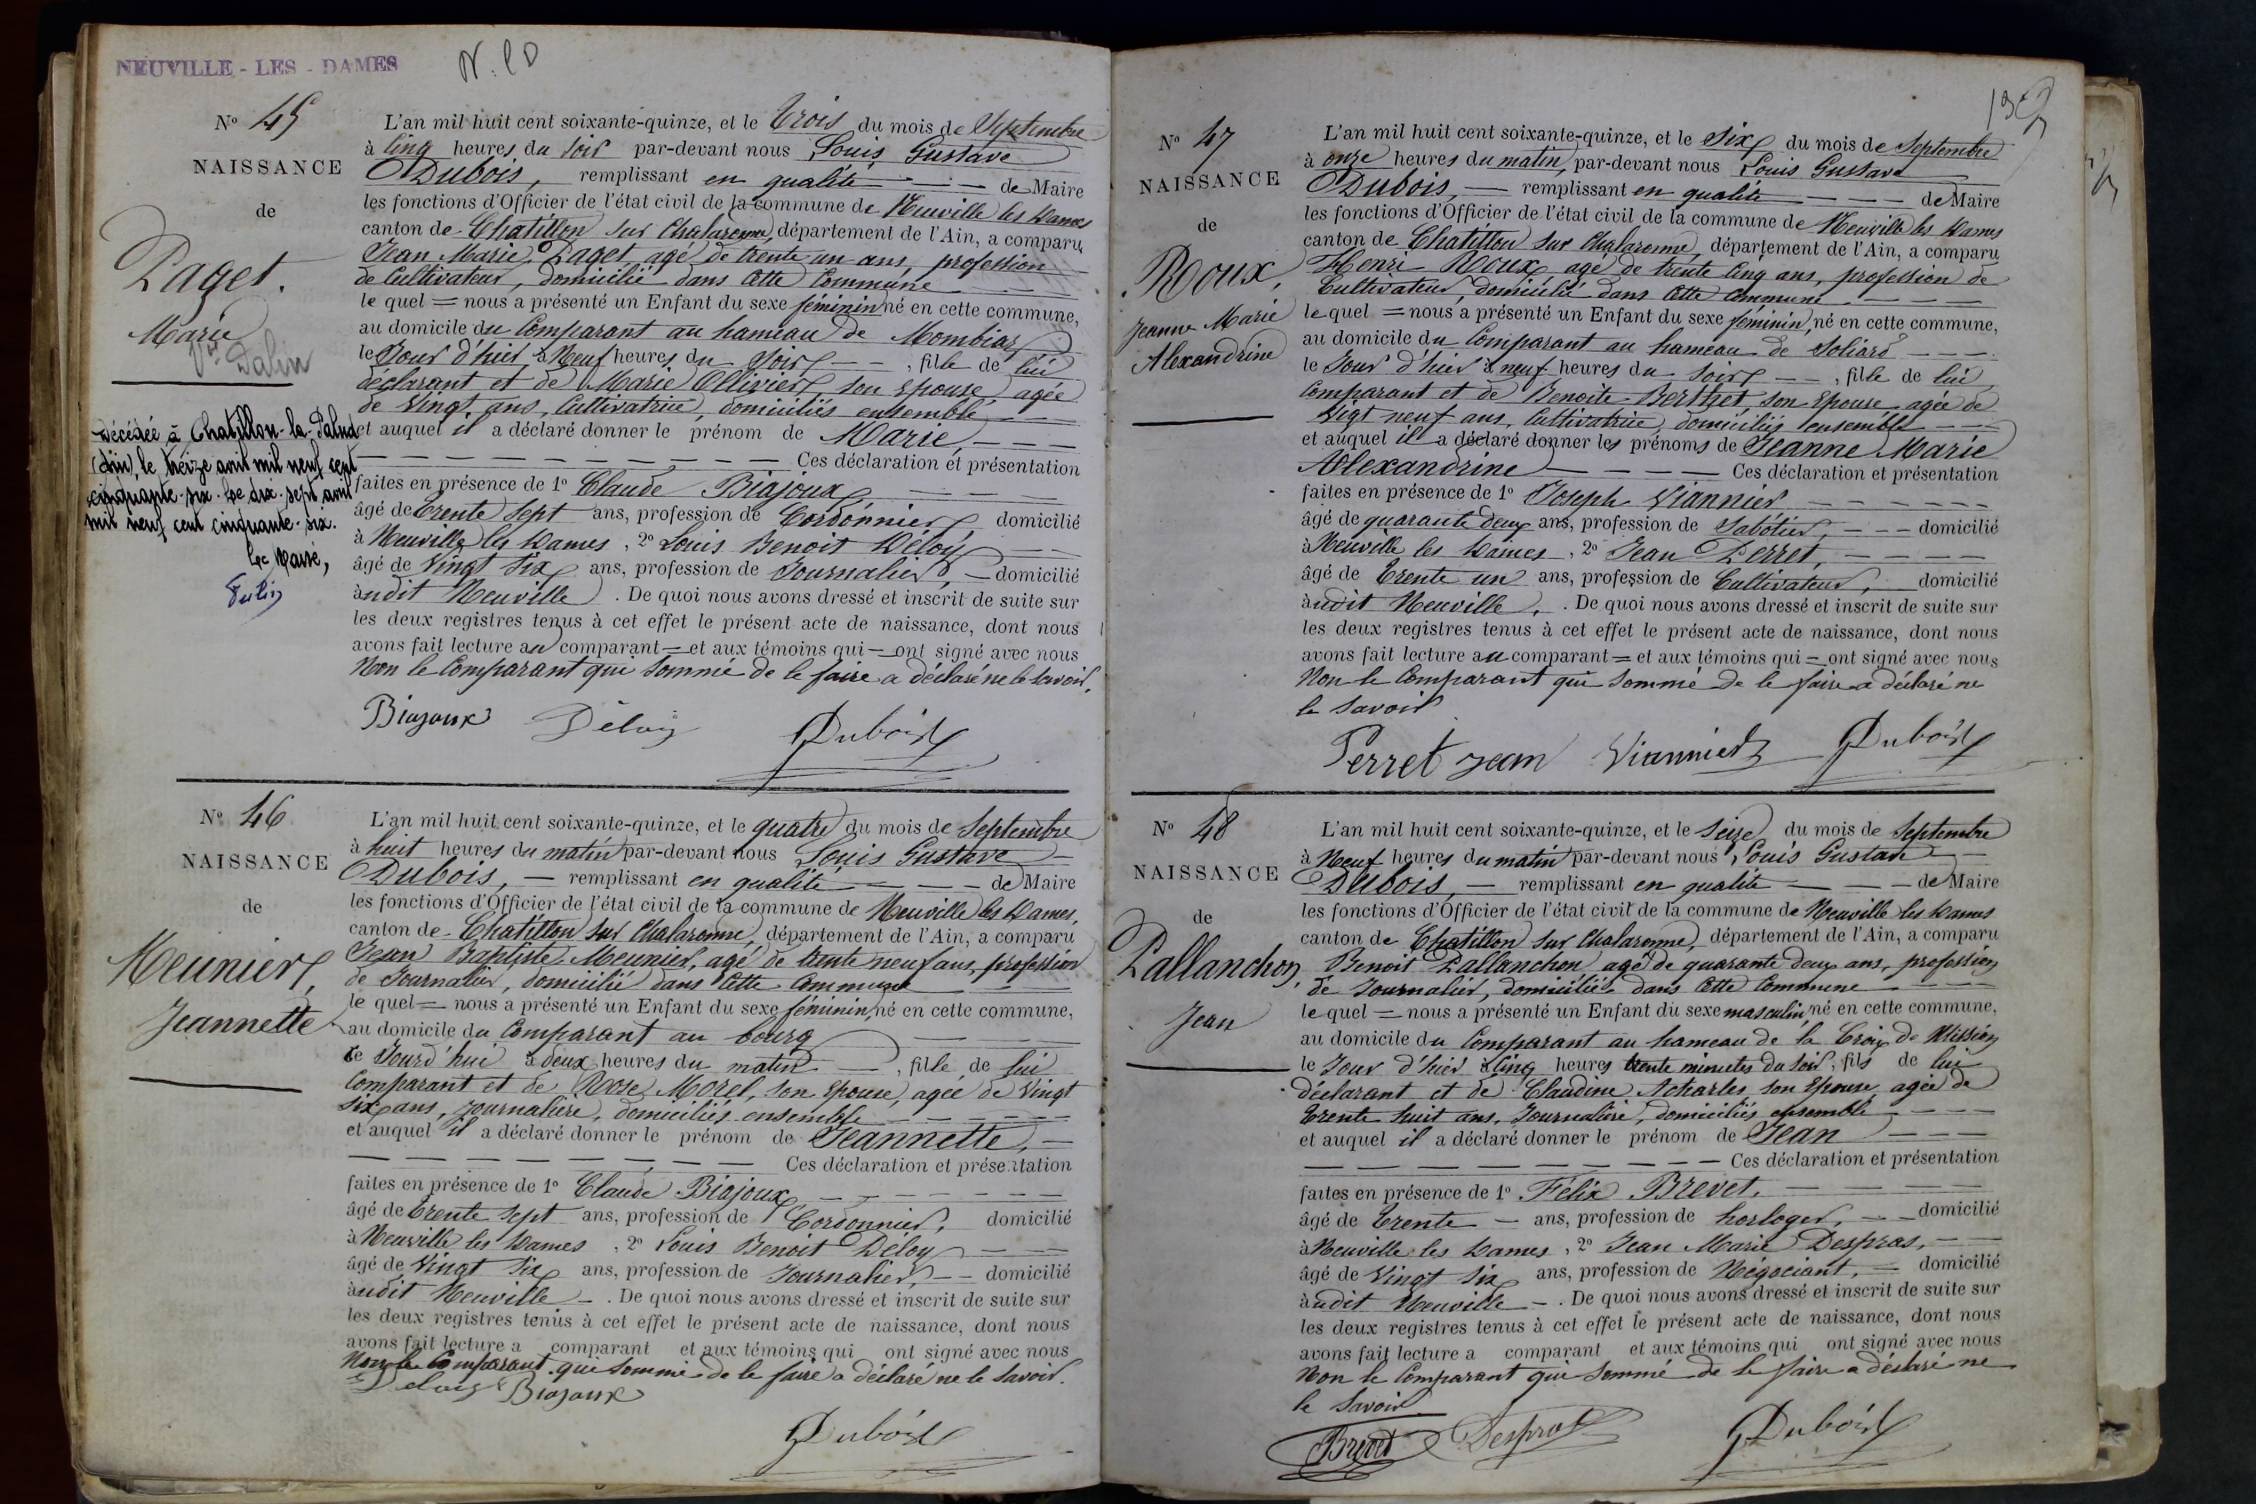 NEUVILLE - LES - DAMES
N. 10
N° 45
NAISSANCE
de
Paget.
Marie
Vve Palin
Décédée à Chatillon-la-Palud
(Ain), le treize avril mil neuf cent
cinquante-six. Le dix-sept avril
mil neuf cent cinquante-six.
Le Maire,
L'an mil huit cent soixante-quinze, et le Trois du mois de Septembre
à Cinq heures du soir par-devant nous Louis Gustave
Dubois, remplissant en qualité — — de Maire
les fonctions d'Officier de l'état civil de la commune de Neuville les Dames
canton de Chatillon sur Chalaronne, département de l'Ain, a comparu
Jean Marie Paget, agé de trente un ans, profession
de Cultivateur, domicilié dans cette Commune
le quel = nous a présenté un Enfant du sexe féminin né en cette commune,
au domicile du Comparant au hameau de Mombiaz
le Jour d'hier à Neuf heures du soir — , fille de lui
déclarant et de Marie Ollivier, son épouse, agée
de Vingt ans, Cultivatrice, domiciliés ensemble
et auquel il a déclaré donner le prénom de Marie, — — —
— — — — — — — — Ces déclaration et présentation
faites en présence de 1° Claude Biajoux
âgé de Trente sept ans, profession de Cordonnier, domicilié
à Neuville les Dames, 2° Louis Benoit Déloy
âgé de Vingt Six ans, profession de Journalier, — domicilié
àudit Neuville . De quoi nous avons dressé et inscrit de suite sur
les deux registres tenus à cet effet le présent acte de naissance, dont nous
avons fait lecture au comparant = et aux témoins qui = ont signé avec nous
Non le Comparant que sommé de le faire a déclaré ne le savoir.
Biajoux Déloy Dubois
N° 46
NAISSANCE
de
Meunier,
Jeannette
L'an mil huit cent soixante-quinze, et le quatre du mois de Septembre
à huit heures du matin par-devant nous Louis Gustave
Dubois, — remplissant en qualité — — — de Maire
les fonctions d'Officier de l'état civil de la commune de Neuville les Dames,
canton de Chatillon sur Chalaronne, département de l'Ain, a comparu
Jean Baptiste Meunier, agé de trente neuf ans, profession
de Journalier, domicilié dans Cette Commune
le quel = nous a présenté un Enfant du sexe féminin né en cette commune,
au domicile du Comparant au bourg
le Jourd'hui à deux heures du matin — , fille de lui
Comparant et de Rose Morel, son épouse, agée de Vingt
six ans, journalière, domiciliés ensemble
et auquel il a déclaré donner le prénom de Jeannette, —
— — — — — — — Ces déclaration et présentation
faites en présence de 1° Claude Biajoux
âgé de Trente sept ans, profession de Cordonnier, domicilié
à Neuville les Dames, 2° Louis Benoit Déloy
âgé de Vingt Six ans, profession de Journalier, — — domicilié
àudit Neuville — . De quoi nous avons dressé et inscrit de suite sur
les deux registres tenus à cet effet le présent acte de naissance, dont nous
avons fait lecture a comparant et aux témoins qui ont signé avec nous
Non le Comparant que sommé de le faire a déclaré ne le savoir.
Deloy Biajoux
Dubois
N° 47
NAISSANCE
de
Roux,
Jeanne Marie
Alexandrine
L'an mil huit cent soixante-quinze, et le six du mois de Septembre
à onze heures du matin, par-devant nous Louis Gustave
Dubois, — remplissant en qualité — — — de Maire
les fonctions d'Officier de l'état civil de la commune de Neuville les Dames
canton de Chatillon sur Chalaronne, département de l'Ain, a comparu
Henri Roux, agé de trente Cinq ans, profession de
Cultivateur, domicilié dans Cette Commune
le quel = nous a présenté un Enfant du sexe féminin, né en cette commune,
au domicile du Comparant au hameau de Soliard
le Jour d'hier à neuf heures du soir — — , fille de lui
Comparant et de Benoite Berthet son épouse agée de
Vigt neuf ans, Cultivatrice, domiciliés ensemble
et auquel il a déclaré donner les prénoms de Jeanne Marie
Alexandrine — — — — Ces déclaration et présentation
faites en présence de 1° Joseph Viannier
âgé de quarante deux ans, profession de Sabotier, — — domicilié
à Neuville les Dames, 2° Jean Perret,
âgé de Trente un ans, profession de Cultivateur, domicilié
àudit Neuville, . De quoi nous avons dressé et inscrit de suite sur
les deux registres tenus à cet effet le présent acte de naissance, dont nous
avons fait lecture au comparant = et aux témoins qui = ont signé avec nous
Non le Comparant que sommé de le faire a déclaré ne
le savoir
Perret Jean Viannier Dubois
N° 48
NAISSANCE
de
Pallanchon,
Jean
L'an mil huit cent soixante-quinze, et le seize du mois de Septembre
à Neuf heures du matin par-devant nous Louis Gustave
Dubois, — remplissant en qualité — — — de Maire
les fonctions d'Officier de l'état civil de la commune de Neuville les Dames
canton de Chatillon sur Chalaronne, département de l'Ain, a comparu
Benoit Pallanchon agé de quarante deux ans, profession
de Journalier, domicilié dans Cette Commune
le quel = nous a présenté un Enfant du sexe masculin, né en cette commune,
au domicile du Comparant au hameau de la Croix de Mission
le Jour d'hier à Cinq heures trente minutes du soir, fils de lui
déclarant et de Claudine Acharles son épouse, agée de
Trente huit ans, Journalière, domiciliés ensemble
et auquel il a déclaré donner le prénom de Jean — — —
— — — — — — — — Ces déclaration et présentation
faites en présence de 1° Félix Brevet,
âgé de Trente — ans, profession de horloger, — — domicilié
à Neuville les Dames, 2° Jean Marie Despras,
âgé de Vingt Six ans, profession de Négociant, — domicilié
àudit Neuville — . De quoi nous avons dressé et inscrit de suite sur
les deux registres tenus à cet effet le présent acte de naissance, dont nous
avons fait lecture a comparant et aux témoins qui ont signé avec nous
Non le Comparant que sommé de le faire a déclaré ne
le savoir
Brevet Despras Dubois